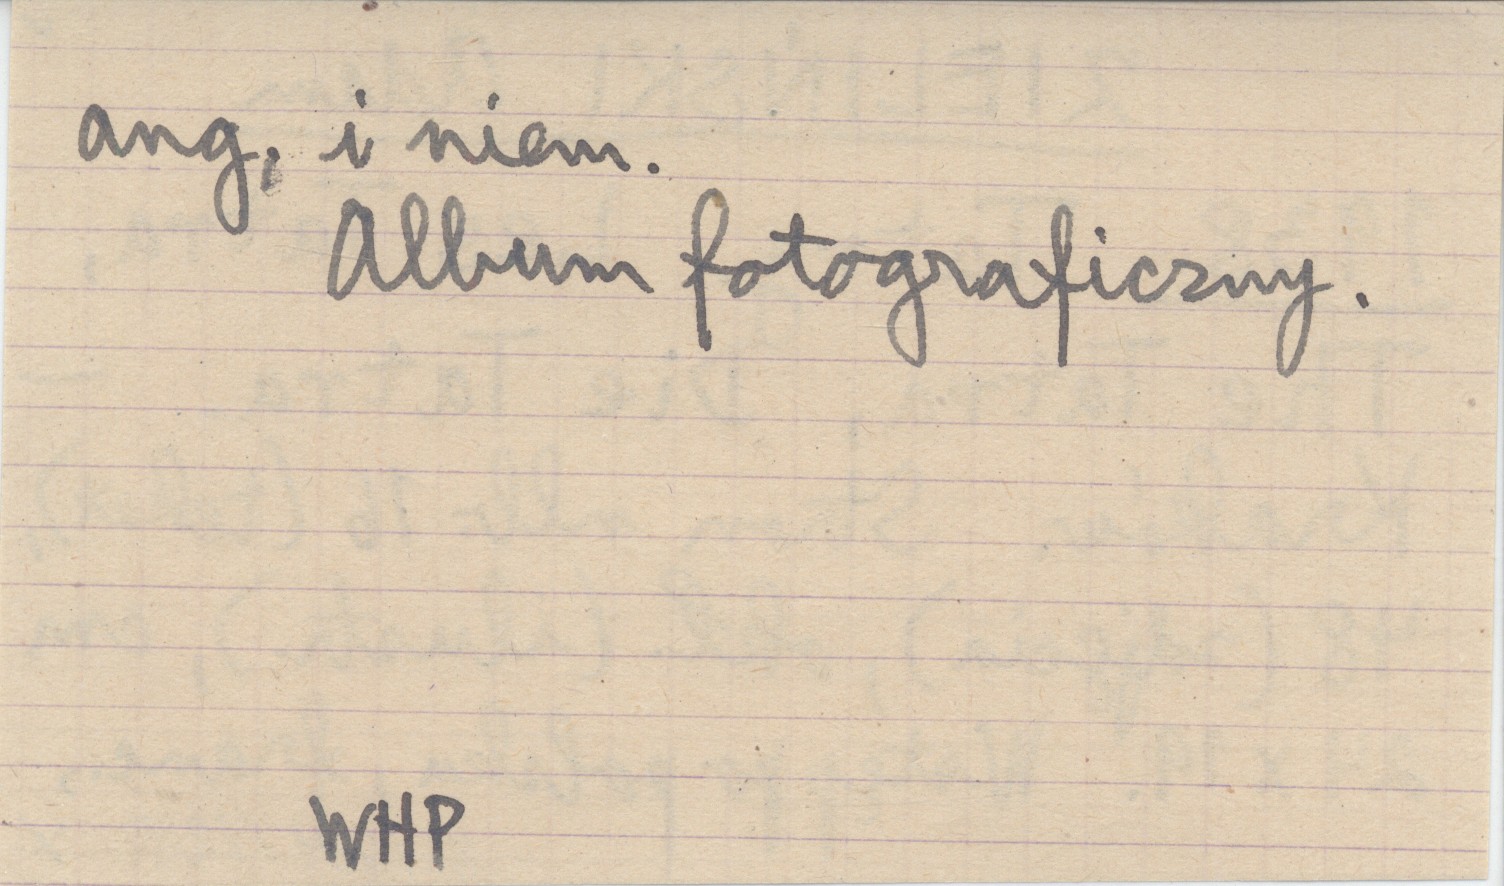 ang, i niem.
Album fotograficzny.
WHP